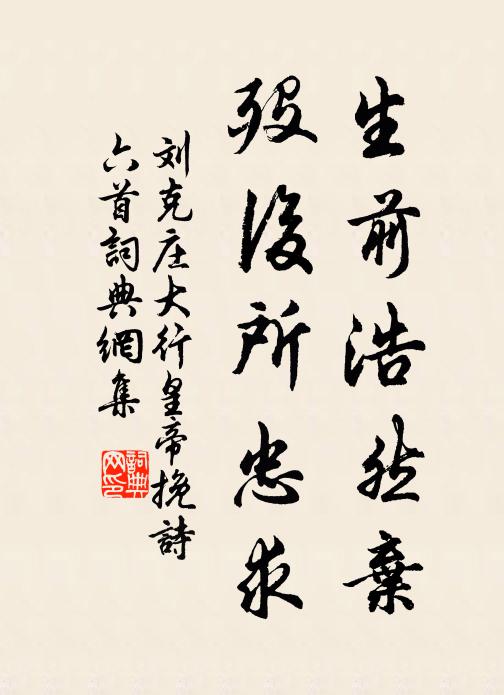 生前浩然棄
歿後所忠求
刘克庄大行皇帝挽詩
六首詞典網集
詞典
网印